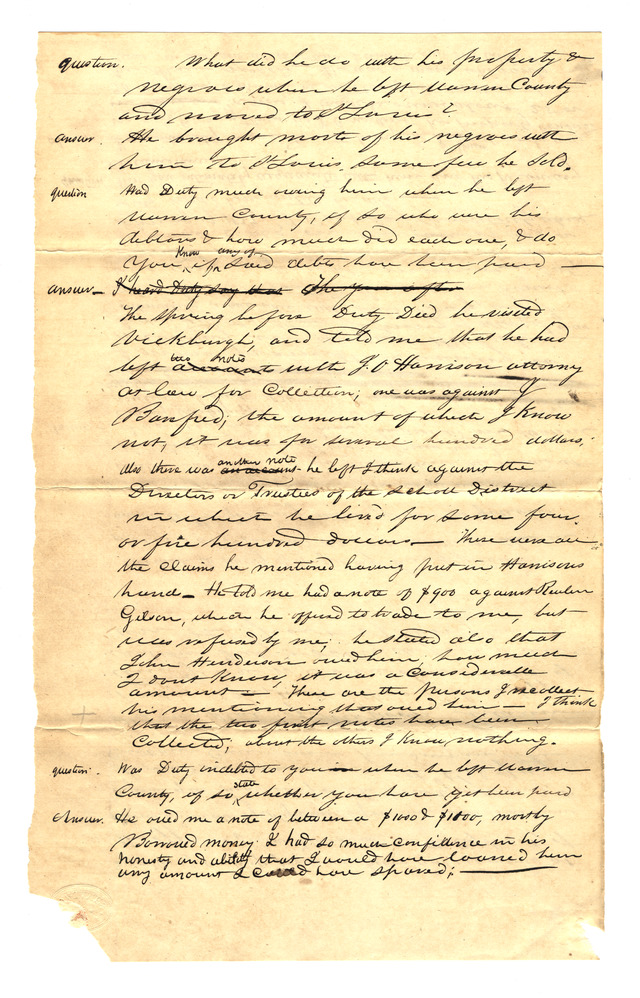 question. What did he do with his property &
negroes when he left Warren County
and moved to St Louis?
answer. He brought most of his negroes with
him to St Louis, some few he sold.
question Had Duty much owing him when he left
Warren County, if so who were his
debtors & how much did each one, & do
You Know if any of said debts have been paid —
answer — I heard Duty say that The year after
The Spring before Duty Died he visited
Vicksburgh, and told me that he had
left two notes accounts with J. O Harrison attorney
at law for Collection; one was against J
Banfred; the amount of which I Know
not, it was for several hundred dollars;
also there was another note an account he left I think against the
Directors or Trustees of the School District
in which he lived for some four
or five hundred dollars — These were all
the claims he mentioned having put in Harrisons
hand — He told me had a note of $900 against Reuben
Gilson, which he offered to trade to me, but
was refused by me; he stated also that
John Henderson owed him, how much
I dont Know, it was a considerable
amount — These are the persons I recollect
his mentioning that owed him — I think
that the two first notes have been
Collected; about the others I Know nothing.
question. Was Duty indebted to you when he left Warren
County, if so, state whether you have yet been paid
Answer. He owed me a note of between a $1000 &
mostly
Borrowed money. I had so much confidence in his
honesty and ability that I would have loaned him
any amount I could have spared; —